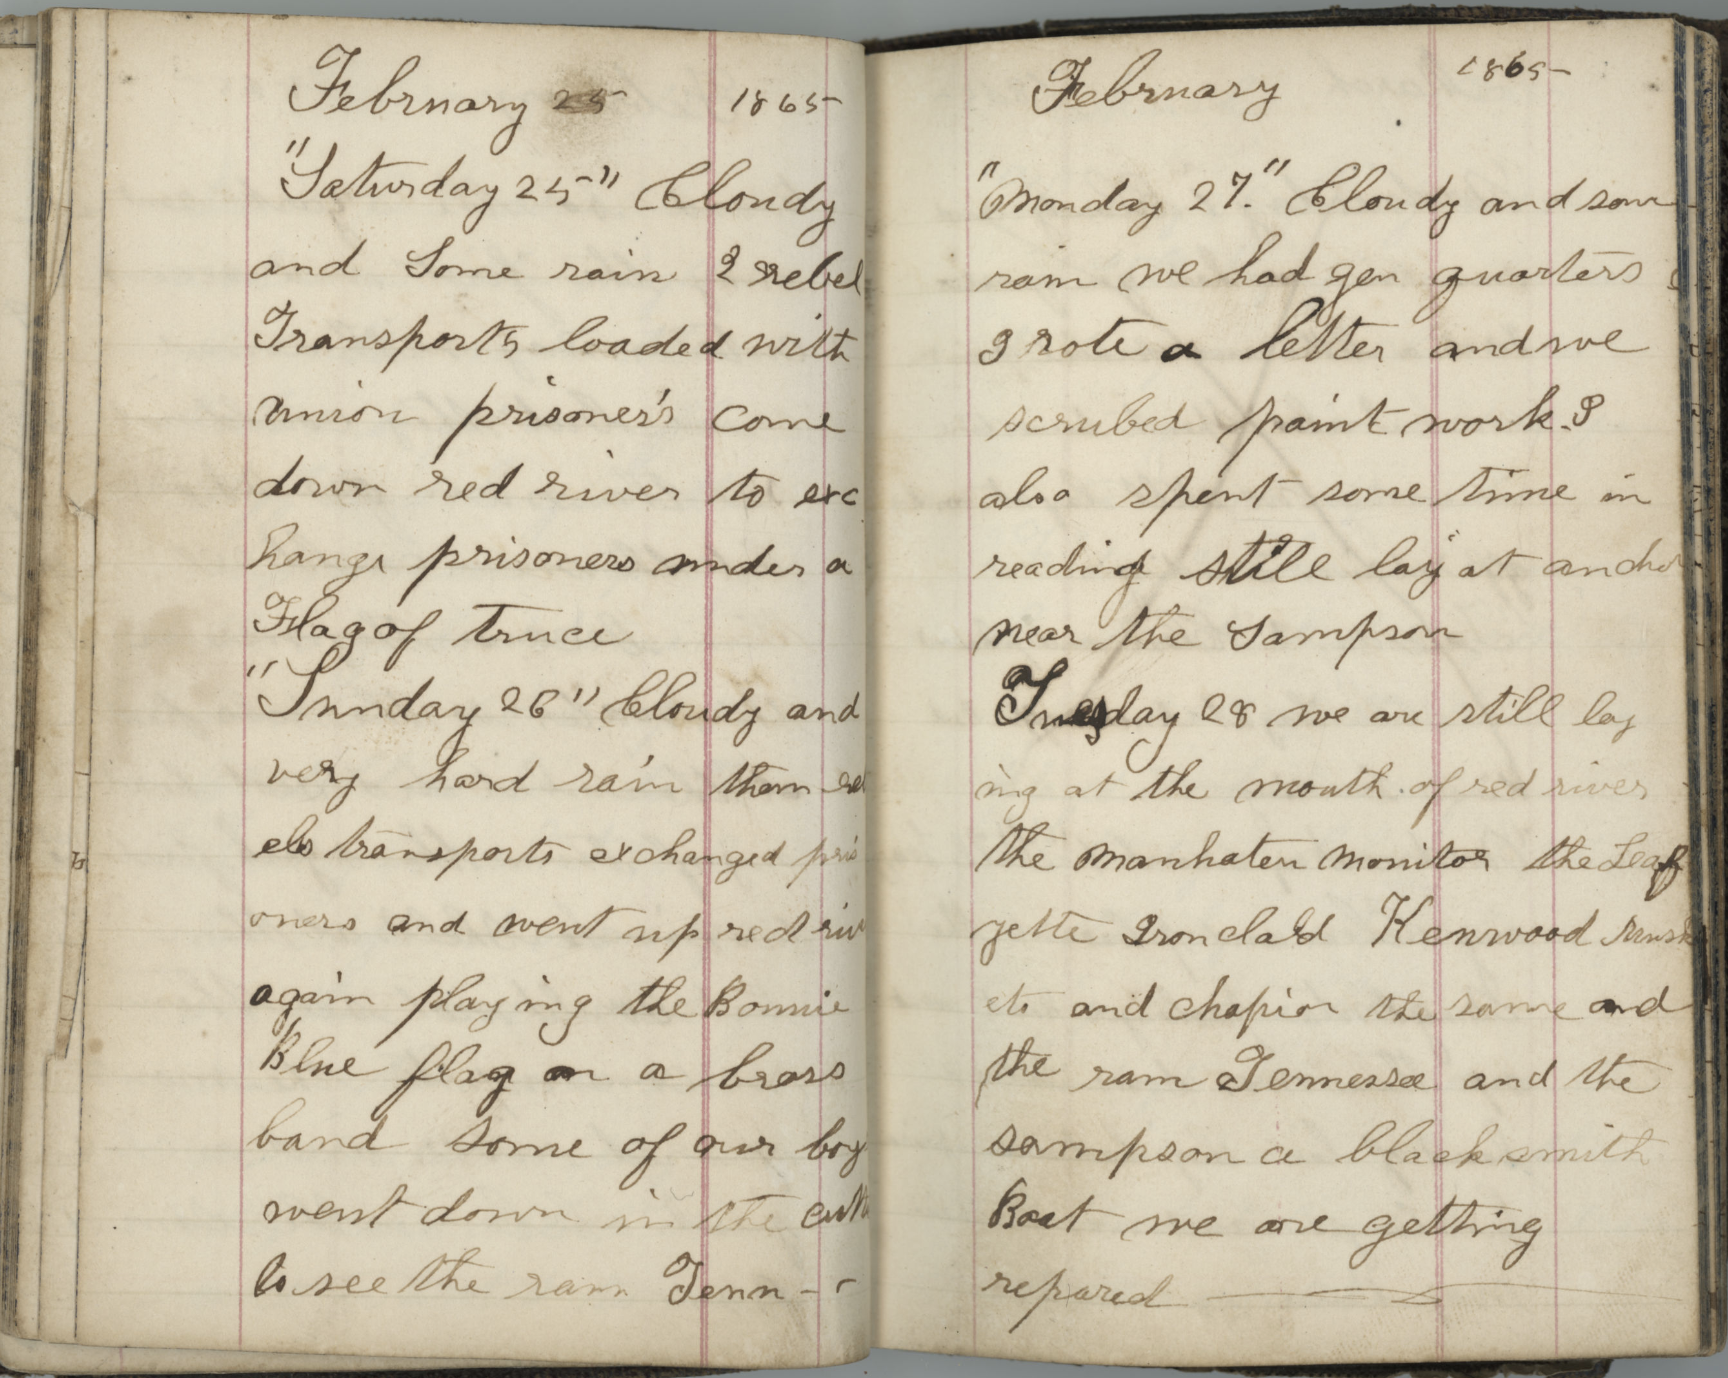 February 25 1865
"Saturday 25" Cloudy
and Some rain 2 rebel
Transports loaded with
union prisoner's come
down red river to exc
hange prisoners under a
Flag of truce
"Sunday 26" Cloudy and
very hard rain them reb
els transports exchanged pris
oners and went up red riv
again playing the Bonnie
Blue flag on a brass
band some of our boy
went down in the cutt
to see the ram Tenn - -
February 1865
"Monday 27." Cloudy and some
rain we had gen quarters
I rote a letter and we
scrubed paint work. I
also spent some time in
reading still lay at anchor
near the Sampson
Tuesday 28 we are still lay
ing at the mouth of red river
the Manhaten Monitor the Leaf
yette Ironclald Kenwood
ets and the same and
the ram Tennessee and the
sampson a blacksmith
Boat we are getting
repared